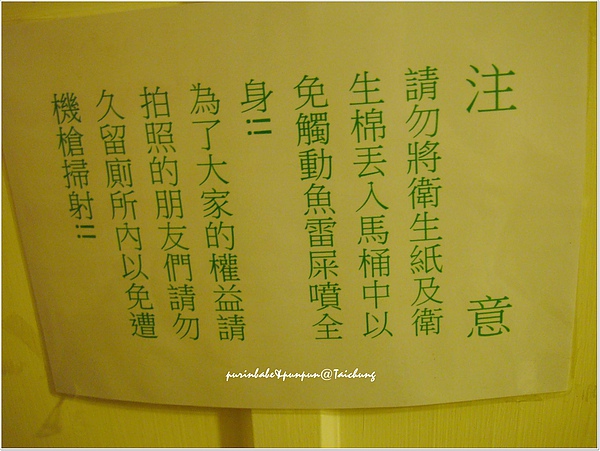 注意
請勿將衛生紙及衛
生棉丟入馬桶中以
免觸動魚雷屎噴全
身!!
為了大家的權益請
拍照的朋友們請勿
久留廁所內以免遭
機槍掃射!!
purinbabe&punpun@Taichung